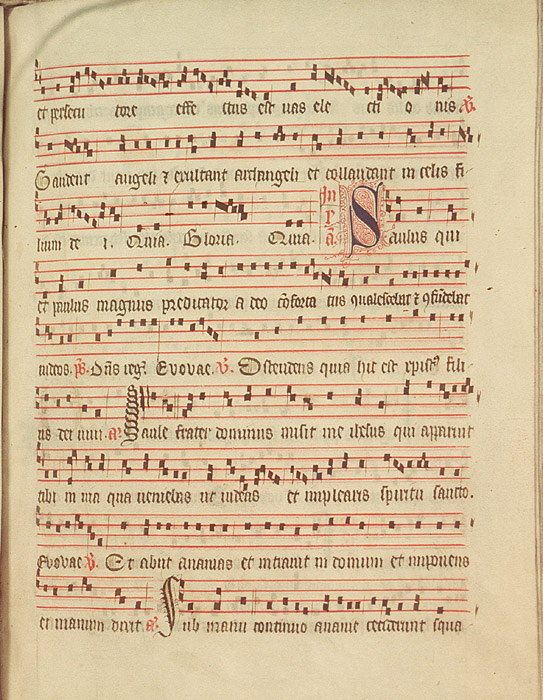 et persecu tore effe ctus est uas ele cti o nis. R.
Gaudent angeli & exultant archangeli et collaudant in celis fi-
lium de i. Quia. Gloria. Quia. In p̄. a. Saulus qui
et paulus magnus predicator a deo cōforta tus
iudeos. ps. Euouae. V. Ostendens quia hic est xpist9 fili-
us dei uiui. a. Saule frater dominus misit me ihesus qui apparuit
tibi in uia qua ueniebas ut uideas et implearis spiritu sancto.
Euouae V. Et abiit ananias et intrauit in domum et imponens
ei manum dixit. a. Sub manu continuo ananie ceciderunt squa